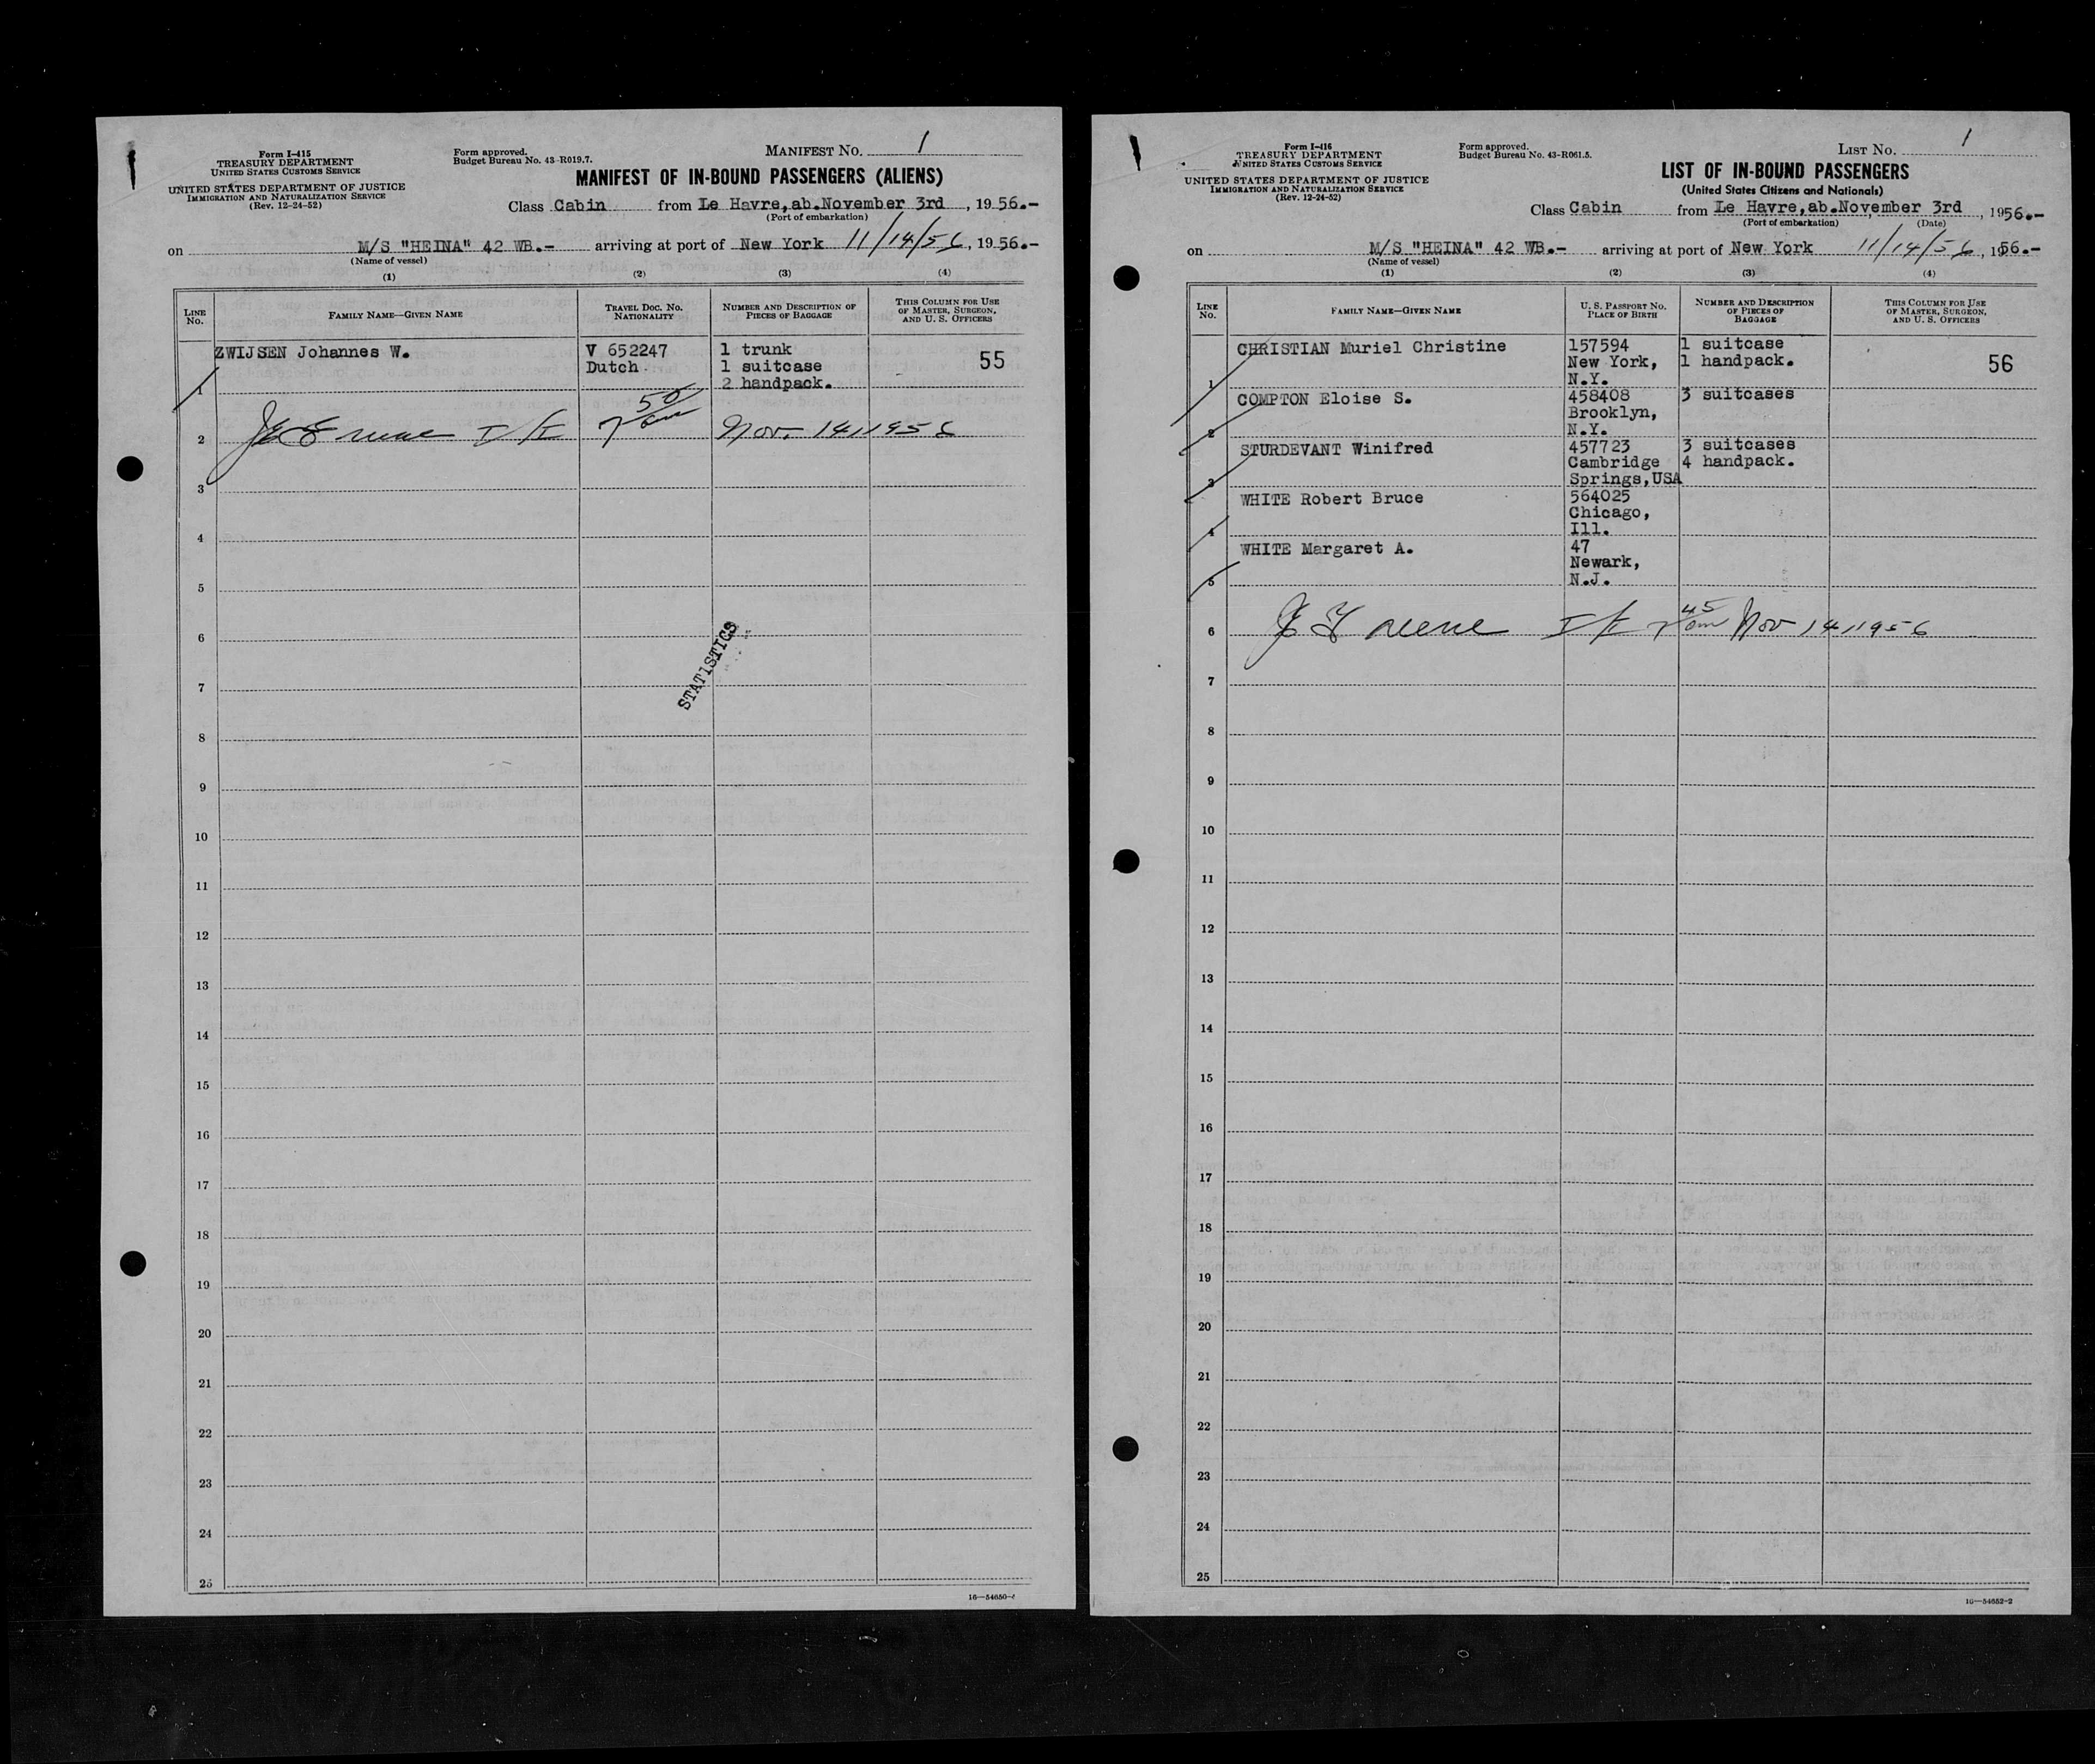 Form I-415
TREASURY DEPARTMENT
UNITED STATES CUSTOMS SERVICE
UNITED STATES DEPARTMENT OF JUSTICE
IMMIGRATION AND NATURALIZATION SERVICE
(Rev. 12-24-52)
Form approved.
Budget Bureau No. 43-R019.7.
MANIFEST NO. 1
MANIFEST OF IN-BOUND PASSENGERS (ALIENS)
Class Cabin from Le Havre,ab.November 3rd, 1956.-
(Port of embarkation)
on M/S "HEINA" 42 WB.- arriving at port of New York 11/14/56, 1956.-
(Name of vessel)
(1) (2) (3) (4)
LINE NO. FAMILY NAME—GIVEN NAME TRAVEL DOC. NO. NATIONALITY NUMBER AND DESCRIPTION OF PIECES OF BAGGAGE THIS COLUMN FOR USE OF MASTER, SURGEON, AND U. S. OFFICERS
ZWIJSEN Johannes W. V 652247 1 trunk 55
Dutch 1 suitcase
1 2 handpack.
2 I/I 7 50 am Nov. 14, 1956
3
4
5
6
STATISTICS
7
8
9
10
11
12
13
14
15
16
17
18
19
20
21
22
23
24
25
Form I-416
TREASURY DEPARTMENT
UNITED STATES CUSTOMS SERVICE
UNITED STATES DEPARTMENT OF JUSTICE
IMMIGRATION AND NATURALIZATION SERVICE
(Rev. 12-24-52)
Form approved.
Budget Bureau No. 43-R061.5.
LIST NO. 1
LIST OF IN-BOUND PASSENGERS
(United States Citizens and Nationals)
Class Cabin from Le Havre,ab.November 3rd, 1956.-
(Port of embarkation) (Date)
on M/S "HEINA" 42 WB.- arriving at port of New York 11/14/56, 1956.-
(Name of vessel)
(1) (2) (3) (4)
LINE NO. FAMILY NAME—GIVEN NAME U. S. PASSPORT NO. PLACE OF BIRTH NUMBER AND DESCRIPTION OF PIECES OF BAGGAGE THIS COLUMN FOR USE OF MASTER, SURGEON, AND U. S. OFFICERS
CHRISTIAN Muriel Christine 157594 1 suitcase
New York, 1 handpack. 56
1 N.Y.
COMPTON Eloise S. 458408 3 suitcases
Brooklyn,
2 N.Y.
STURDEVANT Winifred 457723 3 suitcases
Cambridge 4 handpack.
3 Springs,USA
WHITE Robert Bruce 564025
Chicago,
4 Ill.
WHITE Margaret A. 47
Newark,
5 N.J.
6 I/I 7 45 am Nov 14, 1956
7
8
9
10
11
12
13
14
15
16
17
18
19
20
21
22
23
24
25
16—54652-2